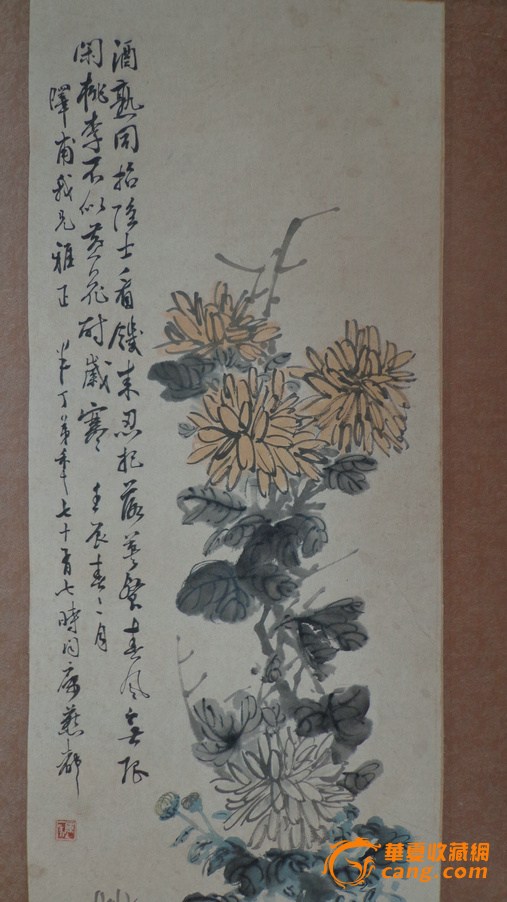 酒熟同招隐士看饑来忍把落英餐春风無限
闲桃李不似黄花耐歲寒 壬辰春二月
甫我兄雅正 半丁弟年七十有七時同寓燕都
華夏收藏網
cang.com